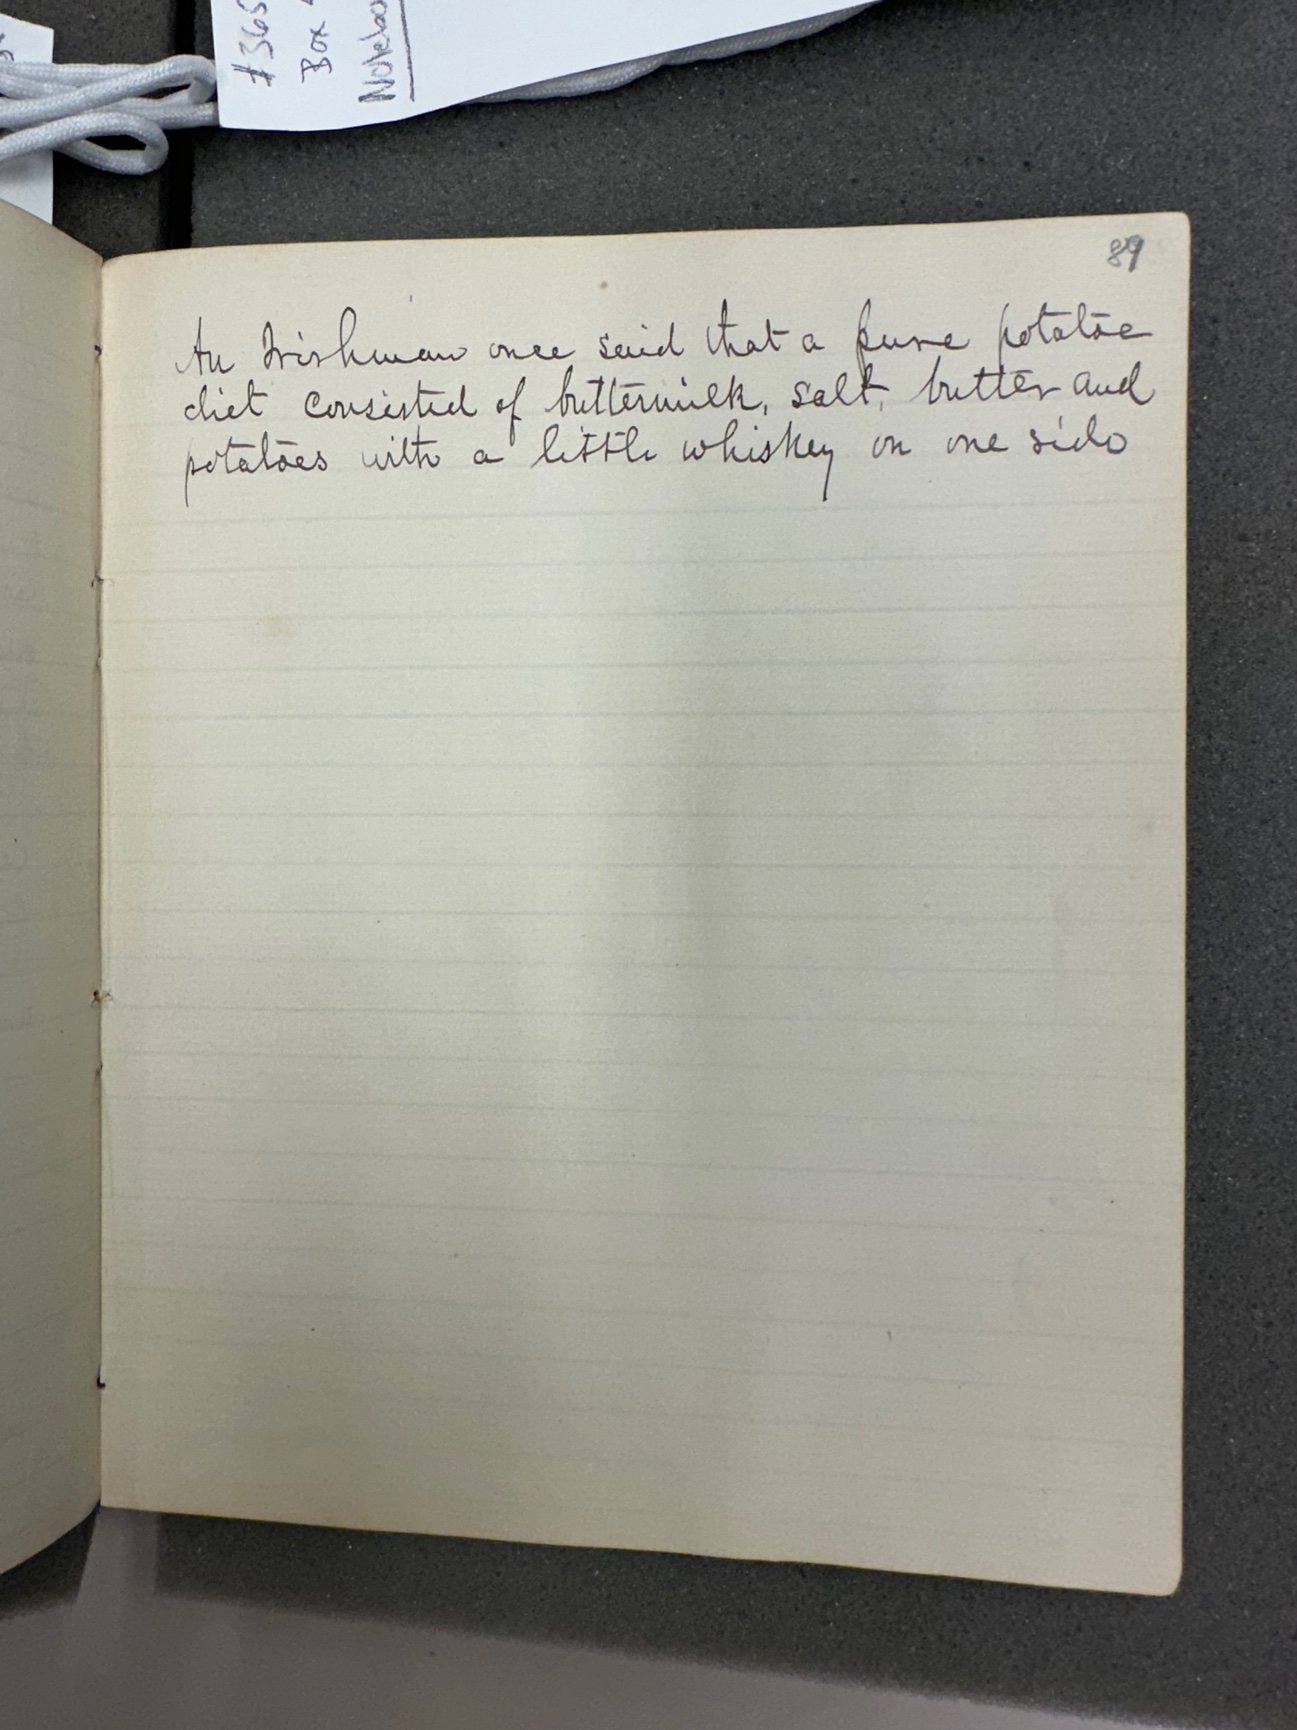 #365
Box
89
An Irishman once said that a pure potatoe
diet consisted of buttermilk, salt, butter and
potatoes with a little whiskey on one side